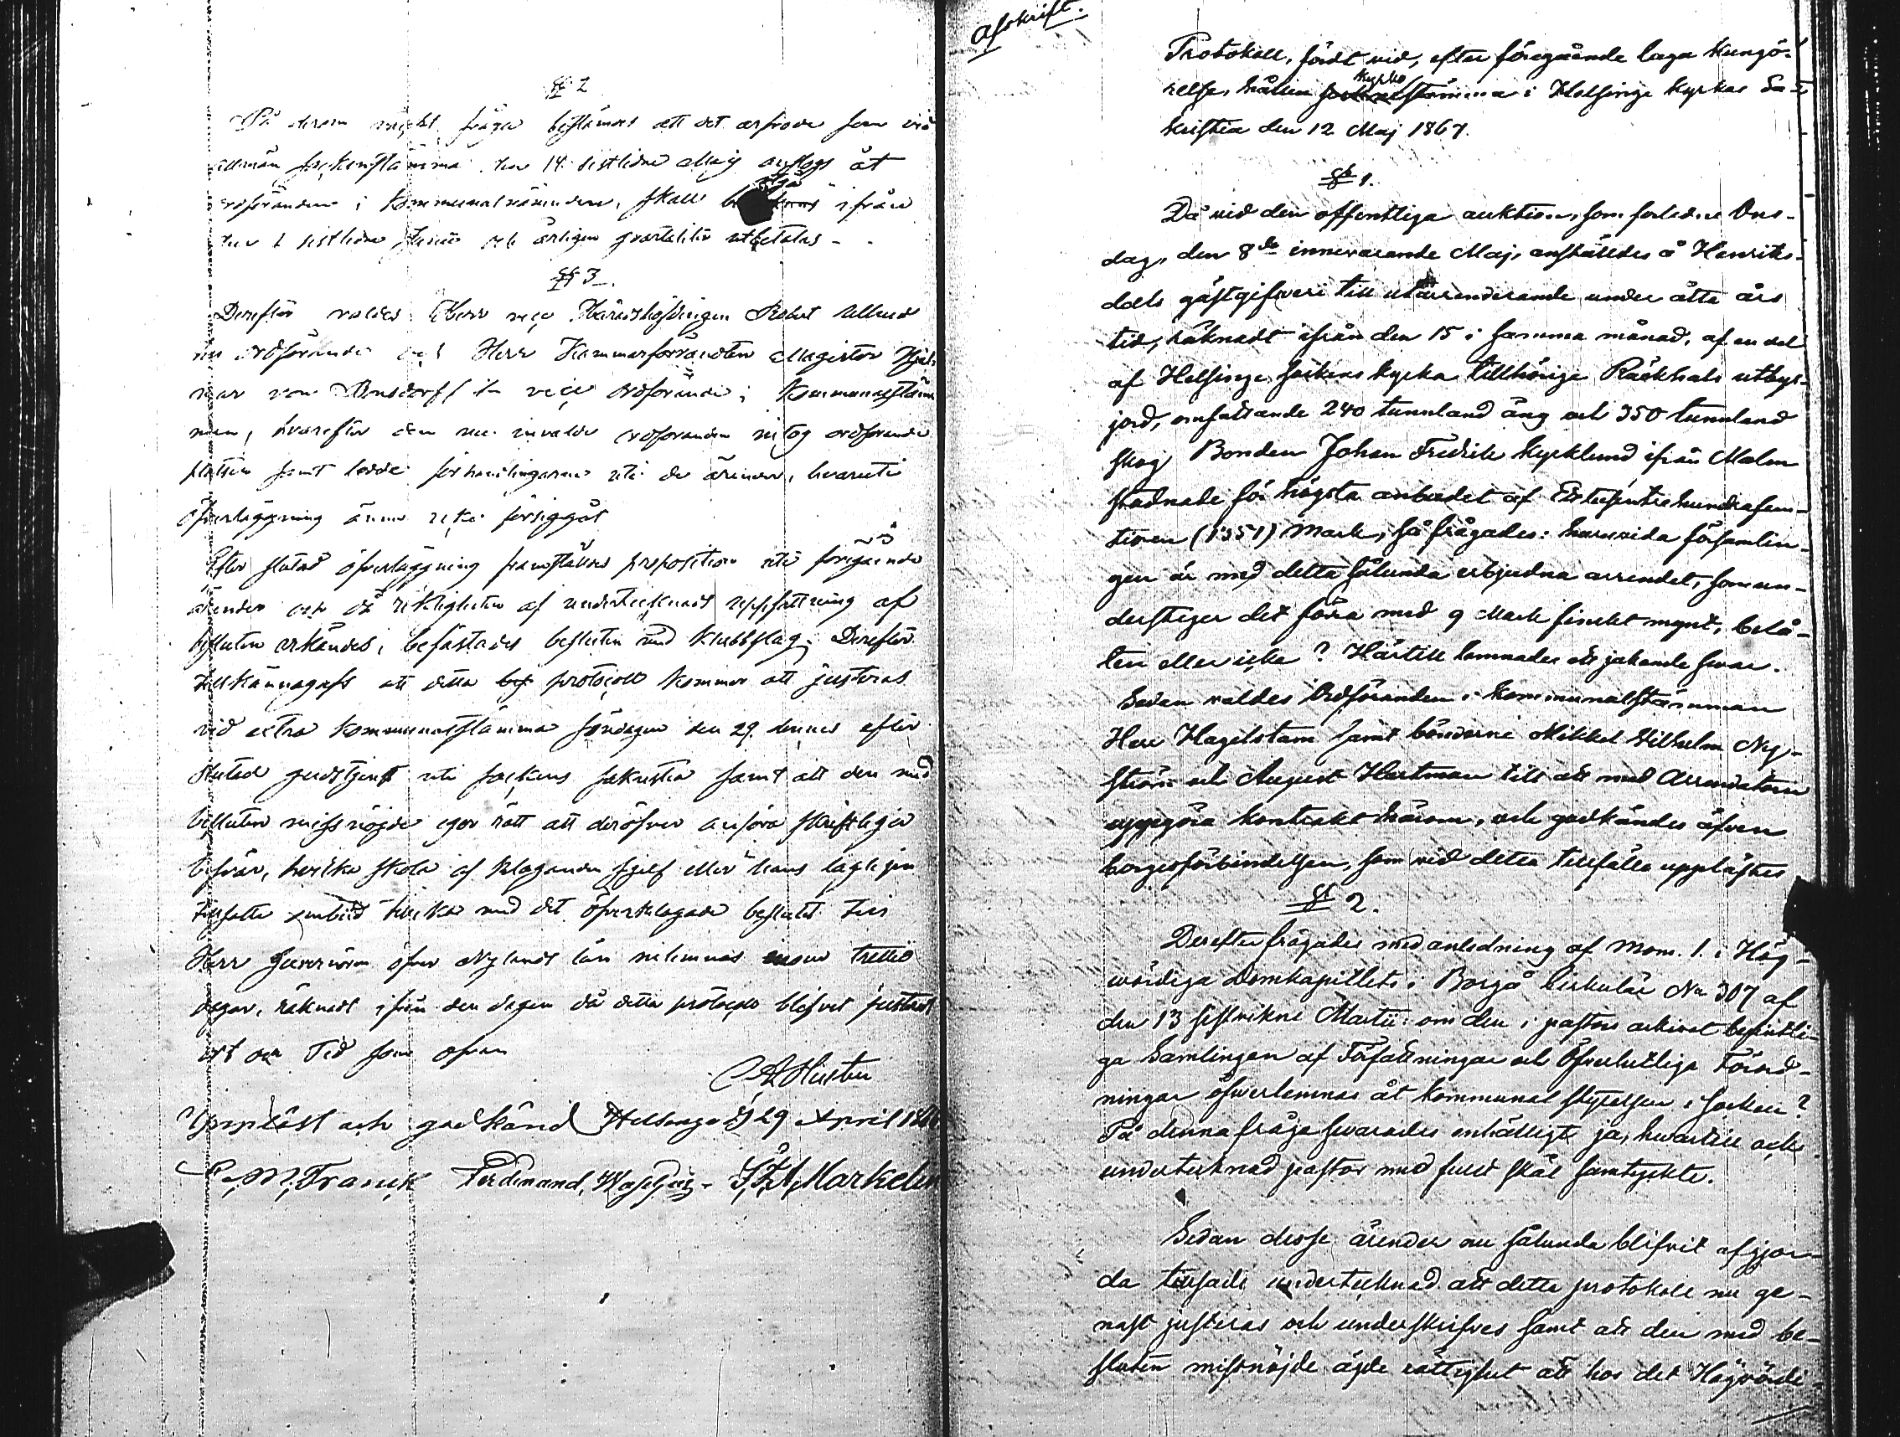 § 2
På derom väckt fråga bestämdes att det arfvode som vid
allmän sockenstämma den 14 sistlidne Maj anslogs åt
ordföranden i Kommunalnämnden, skall utgå ifrån
den 1 sistlidne Junii och årligen qvartaliter utbetalas.
§ 3.
Derefter valdes Herr vice Häradshöfdingen Robert
till Ordförande och Herr Kammarförvandten Magister Hjal-
mar von Bonsdorff till vice ordförande i Kommunalstäm
man, hvarefter den nu invalde ordföranden intog ordförande
platsen samt ledde förhandlingarne uti de ärender, hvaruti
öfverläggning ännu icke försiggått
Efter slutad öfverläggning framställdes proposition uti föregående
ärender och då riktigheten af undertecknads uppfattning af
besluten erkändes, befästades besluten med klubbslag. Derefter
tillkännagafs att detta protocoll kommer att justeras
vid extra Kommunalstämma söndagen den 29 dennes efter
slutad gudstjenst uti sockens sakristia samt att den med
besluten missnöjde eger rätt att deröfver anföra skriftliga
besvär, hvilka skola af klaganden sjelf eller hans lagligen
befullmäktigade ombud tillika med det öfverklagade beslutet till
Herr Guvernören öfver Nylands län inlemnas inom trettio
dagar, räknadt ifrån den dagen då detta protocoll blifvit justeradt
ort och Tid som ofvan
Uppläst och godkänd Helsinge d. 29 April
C. M. Franck Ferdinand, Markelin
Afskrift.
Protokoll, fördt vid, efter föregående laga kungö-
relse, hållen kyrkostämma i Helsinge kyrkas Sa-
kristia den 12 Maj 1867.
§ 1.
Då vid den offentliga auktion, som förledne Ons-
dag, den 8de innevarande Maj, anställdes å Henriks-
dals gästgifveri till utarrenderande under åtta års
tid, räknadt ifrån den 15 i samma månad, af en del
af Helsinge sockens kyrka tillhörige Räckhals utbys-
jord, omfattande 240 tunnland äng och 350 tunnland
skog Bonden Johan Fredrik Kycklund ifrån Malm
stadnade för högsta anbudet af Ettusentrehundrafem-
tioen (1351) Mark, så frågades: huruvida församlin-
gen är med detta sålunda erbjudna arrendet, som un-
derstiger det förra med 9 Mark finskt mynt, belå-
ten eller icke? Härtill lemnades ett jakande svar.
Sedan valdes Ordföranden i kommunalstämman
Herr Hagelstam samt bönderne Mikkel Vilhelm Ny-
ström och August Hartman till att med Arrendatorn
uppgöra kontrakt härom, och godkändes äfven
borgesförbindelsen, som vid detta tillfälle upplästes
§ 2.
Derefter frågades med anledning af Mom. 1. i Hög-
wördiga Domkapitlets i Borgå Cirkulär No 307 af
den 13 sistvikne Martii: om den i pastors arkivet befintli-
ga Samlingen af Författningar och Öfverhetliga Förord-
ningar öfverlemnas åt kommunal styrelsen i socken?
På denna fråga svarades enhälligt ja, hvartill och
undertecknad pastor med fullt skäl samtyckte.
Sedan desse ärender nu sålunda blifvit afgjor-
da tillsade undertecknad att detta protokoll nu ge-
nast justeras och underskrifves samt att den med be-
sluten missnöjde ägde rättighet att hos det Högvördi